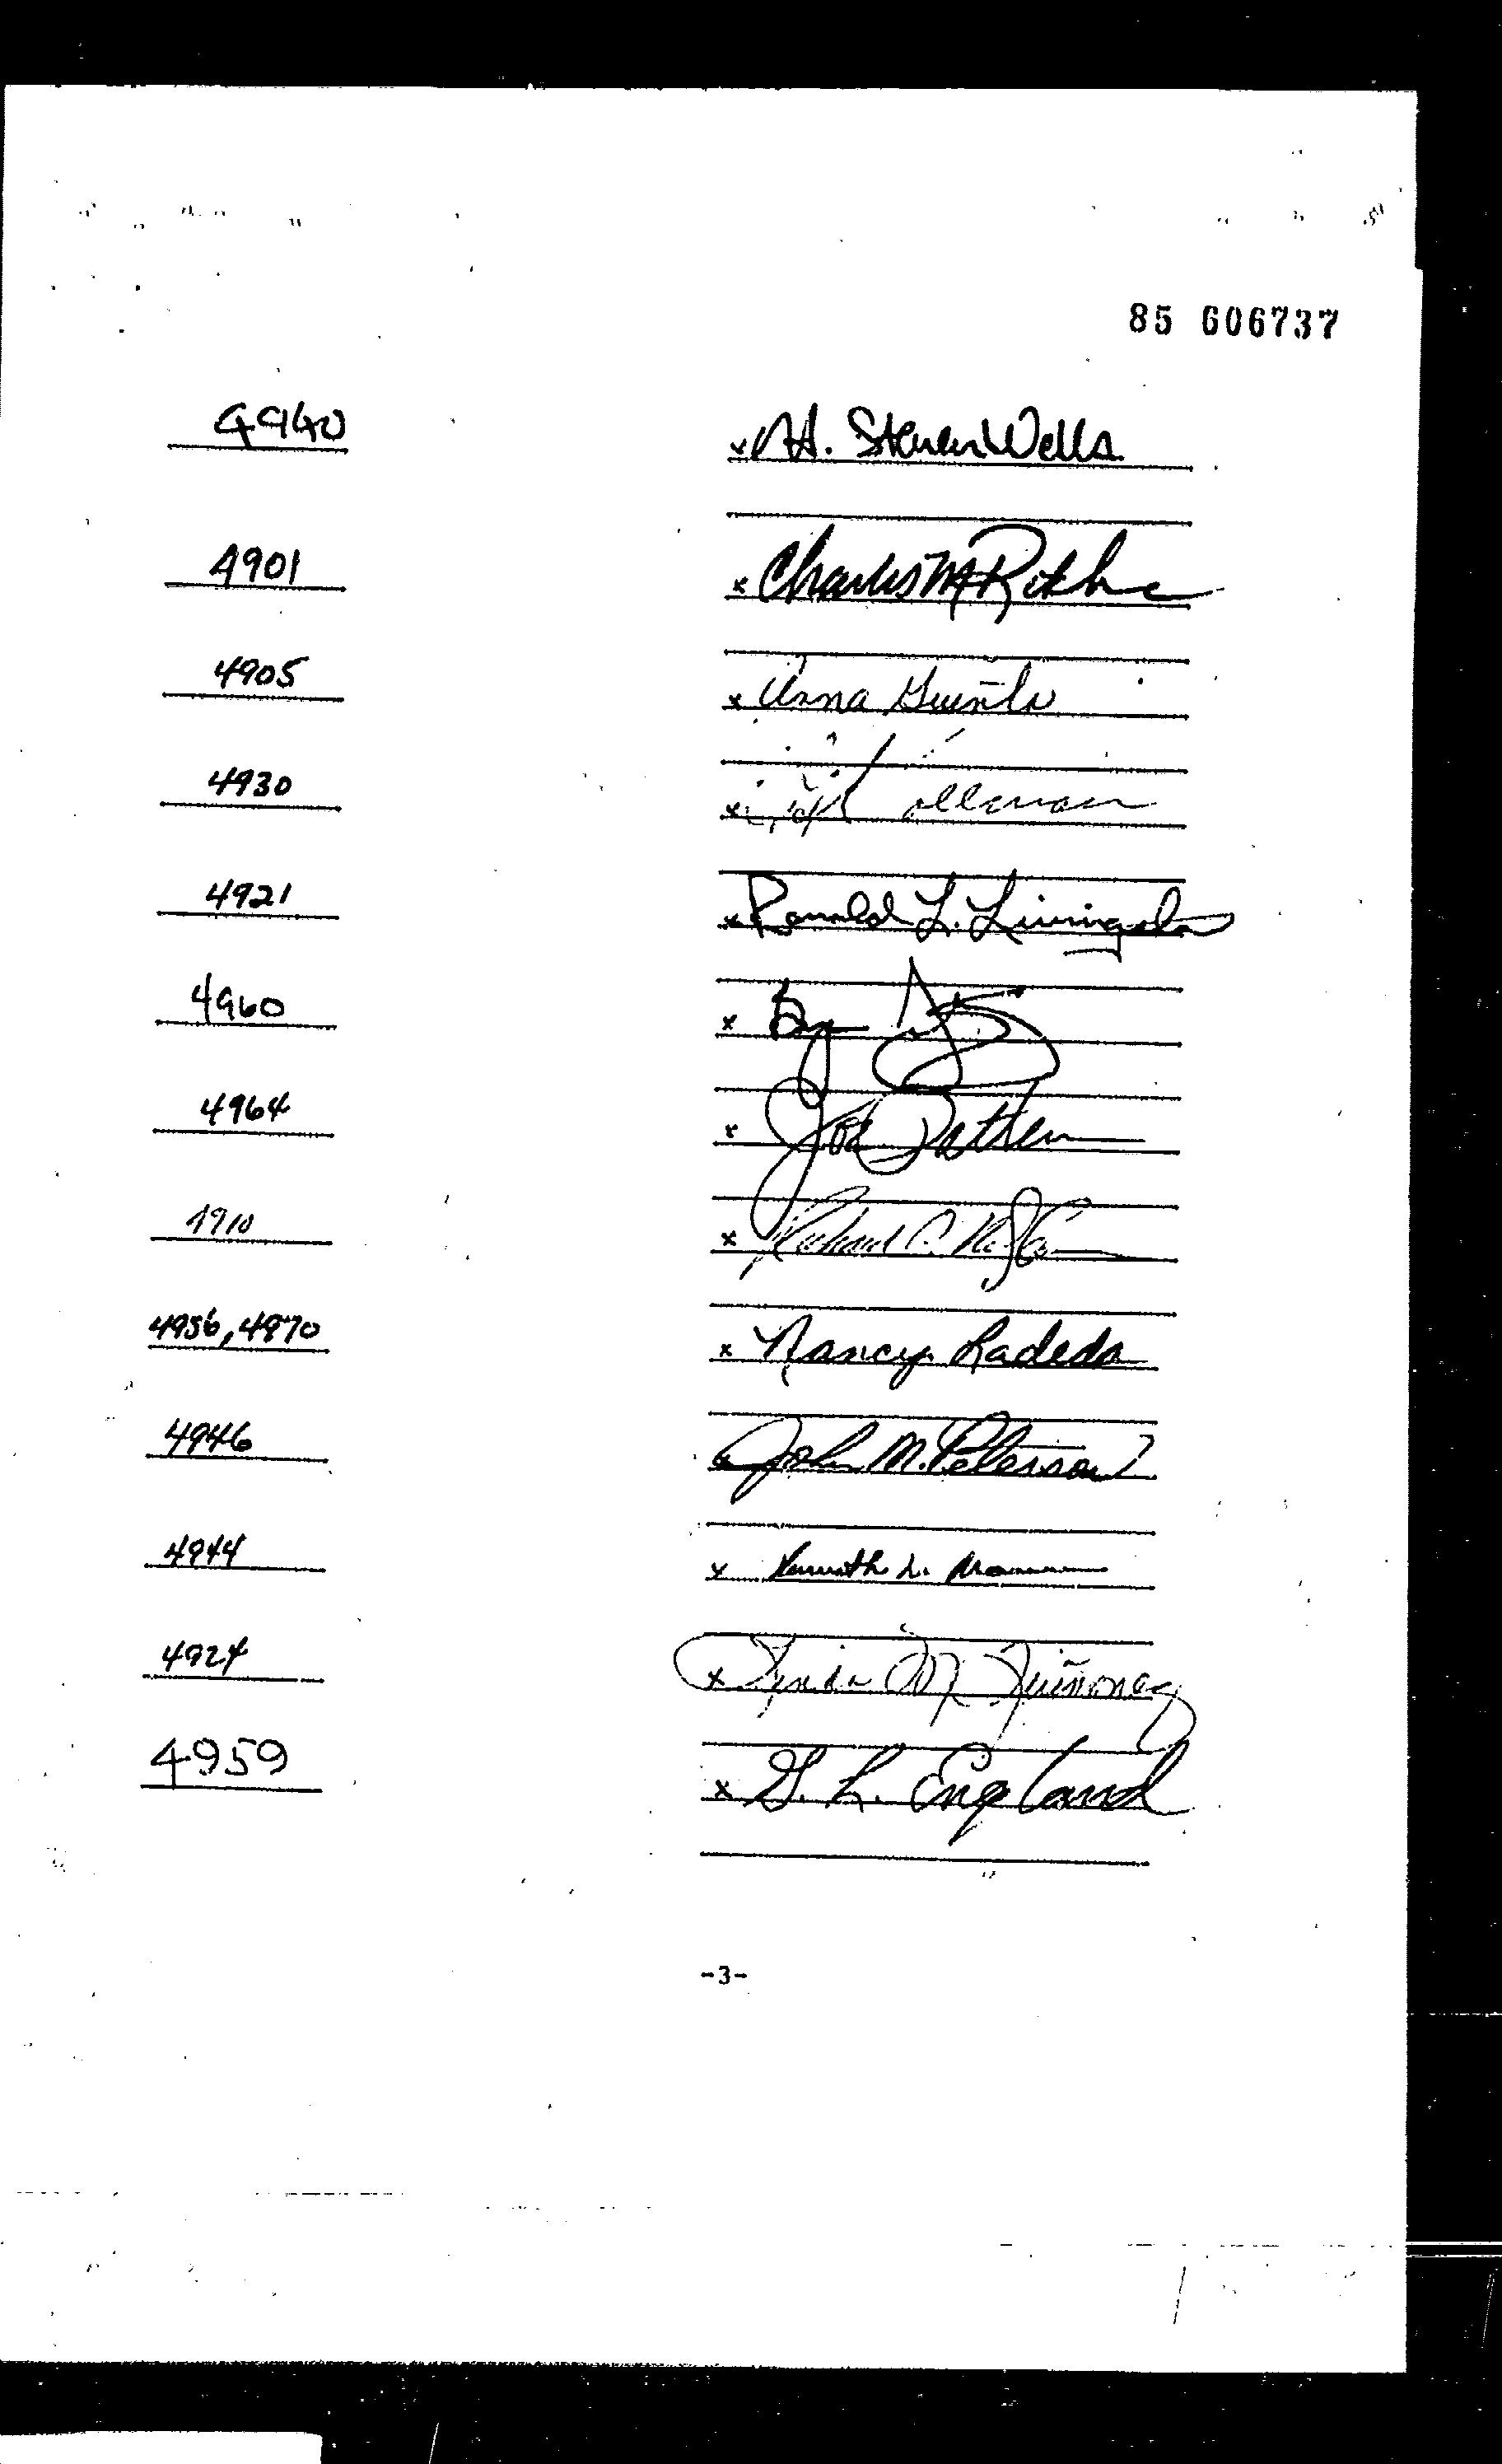 85 606737
4940 x H. Steven Wells
4901 x Charles M Rothe
4905 x Anna
4930 x
4921 x Ronald L. Livingston
4960 x
4964 x Joe
4910 x Richard C.
4956, 4970 x Nancy Ladeda
4946 x John M. Peterson
4944 x Kenneth L.
4924 x Lynda M Quiñonez
4959 x G. L. England
-3-